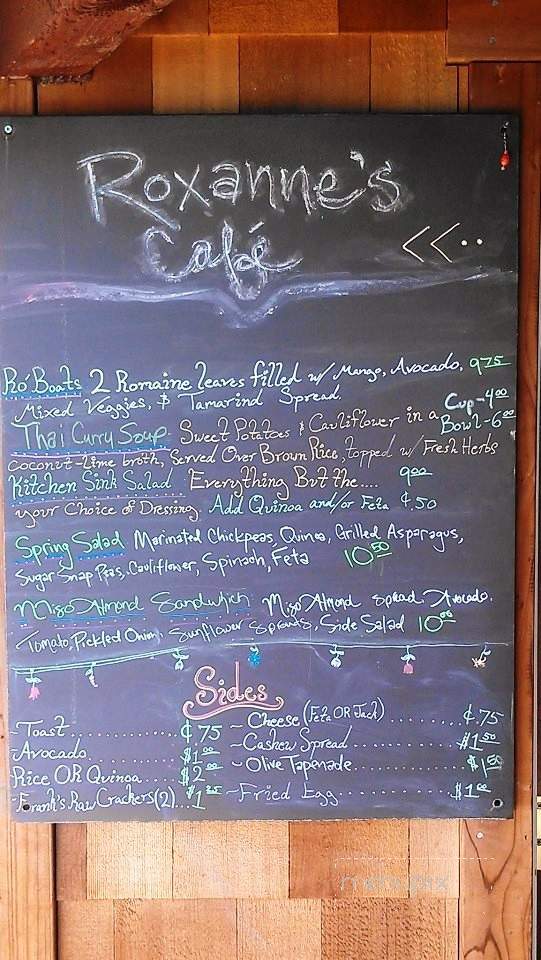 Roxanne's
Café
<<··
Ro'Boats 2 Romaine leaves filled w/ Mango, Avocado, 9.75
Mixed Veggies, & Tamarind Spread.
Thai Curry Soup Sweet Potatoes & Cauliflower in a Cup-4.00
coconut-lime broth, Served Over Brown Rice, topped w/ Fresh Herbs Bowl-6.00
Kitchen Sink Salad Everything But the.... 9.00
your Choice of Dressing. Add Quinoa and/or Feta ¢.50
Spring Salad Marinated Chickpeas, Quinoa, Grilled Asparagus,
Sugar Snap Peas, Cauliflower, Spinach, Feta 10.50
Miso Almond Sandwhich Miso Almond Spread, Avocado.
Tomato, Pickled Onion, Sunflower Sprouts, Side Salad 10.00
Sides
~Toast ¢75
~Avocado $1.00
Rice OR Quinoa $2.00
~Frank's Raw Crackers (2) $1.25
~Cheese (Feta OR Jack) ¢.75
~Cashew Spread $1.50
~Olive Tapenade $1.50
~Fried Egg $1.00